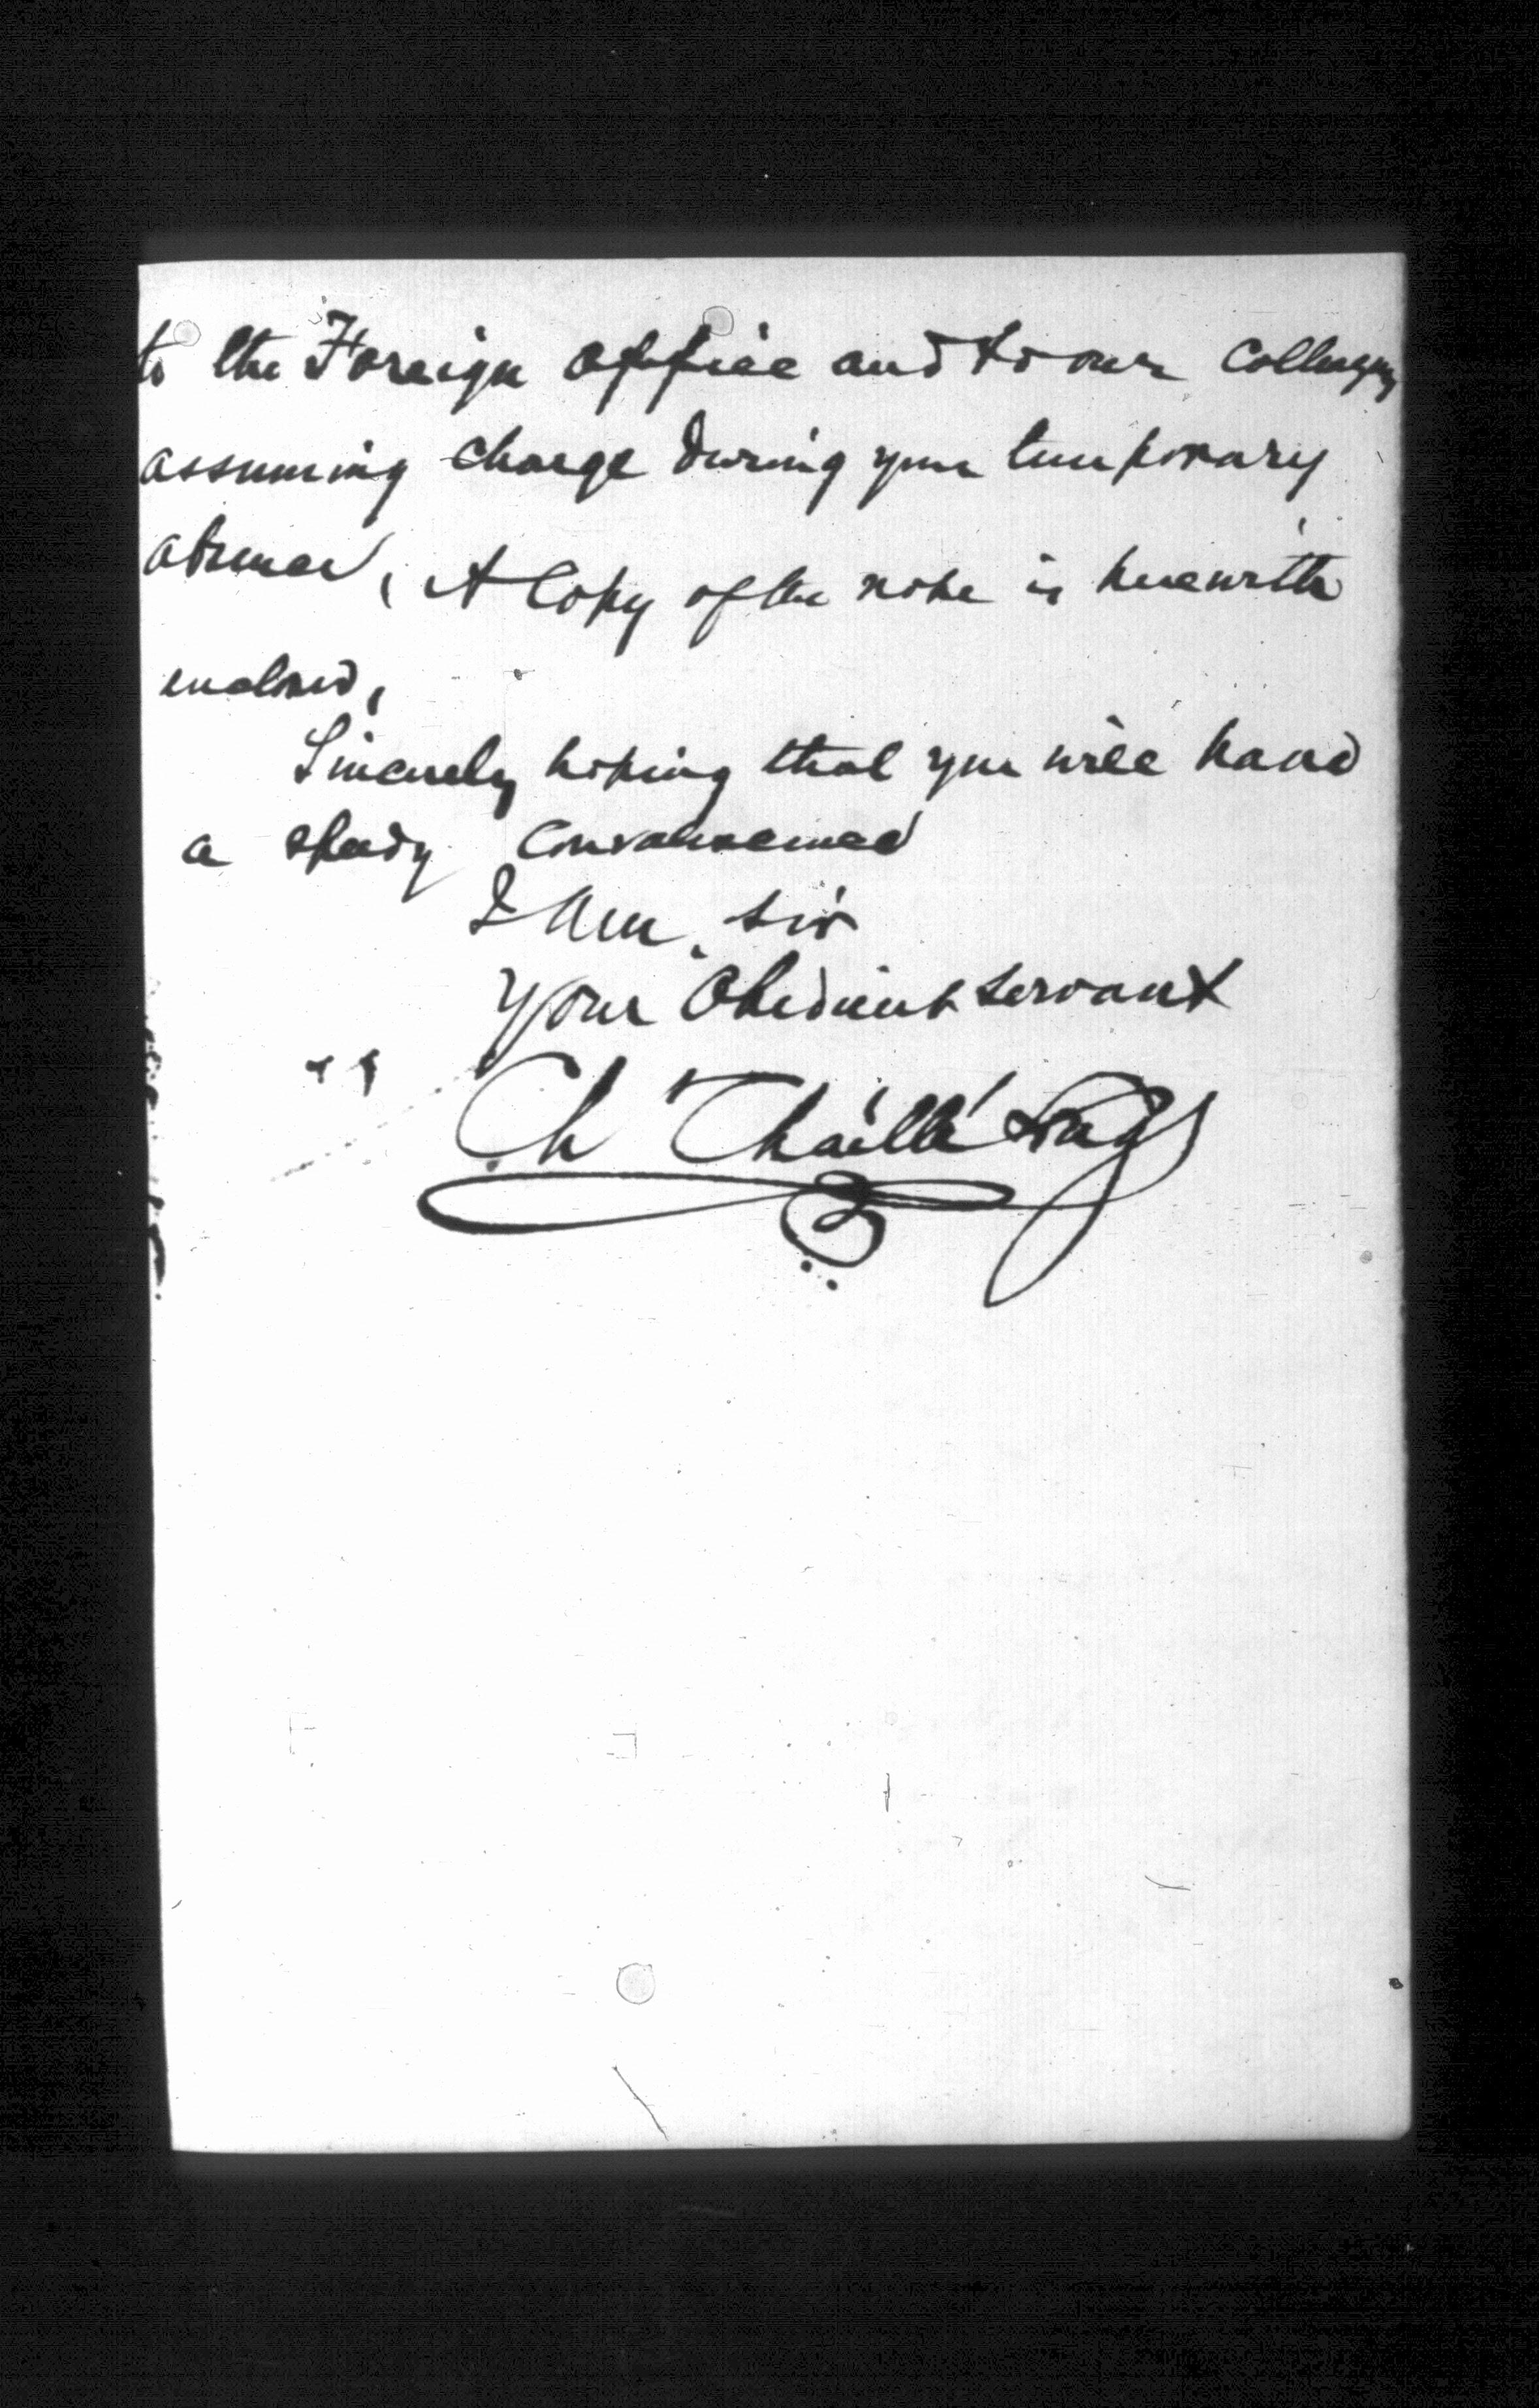 to the Foreign Office and to our Colleagues
assuming charge during your temporary
absence, A Copy of the note is herewith
enclosed,
Sincerely hoping that you will have
a speedy Convalescence
I am, sir
Your Obedient servant
Ch Chaillé Long